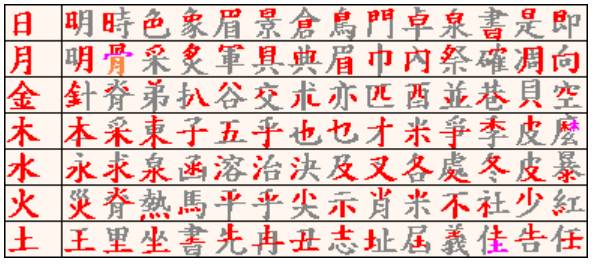 日 明 時 色 象 眉 景 倉 鳥 門 卓 泉 書 是 即
月 明 骨 采 炙 軍 具 典 眉 巾 內 祭 確 凋 向
金 針 脊 弟 扒 谷 交 朮 亦 匹 酉 並 巷 貝 空
木 本 采 東 子 五 乎 也 乜 才 米 爭 季 皮 麼
水 永 求 泉 函 溶 治 決 及 叉 各 處 冬 皮 暴
火 災 脊 熱 馬 平 乎 尖 示 肖 米 不 社 少 紅
土 王 里 坐 書 先 冉 丑 志 址 屆 義 隹 告 任